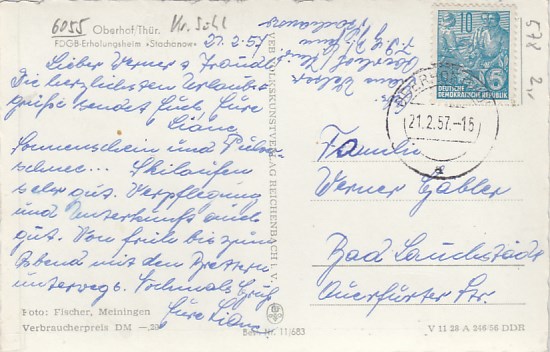 6055
Oberhof/Thür.
Kr. Suhl
FDGB-Erholungsheim »Stachanow«
21.2.57
Lieber Werner u. Traudl
Die herzlichsten Urlaubs-
grüße sendet Euch Eure
Liane
Sonnenschein und Pulver-
schnee... Skilaufen
sehr gut. Verpflegung
und Unterkunft auch
gut. Von früh bis zum
Abend mit den Brettern
unterwegs. Nochmals Gruß
Eure Liane
VEB VOLKSKUNSTVERLAG REICHENBACH i. V.
10
DEUTSCHE
DEMOKRATISCHE REPUBLIK
21.2.57.-15
Familie
Werner Gabler
Bad Lauchstädt
Querfurter Str.
Foto: Fischer, Meiningen
Verbraucherpreis DM —,20
Best. Nr. 11/683
V 11 28 A 246 56 DDR